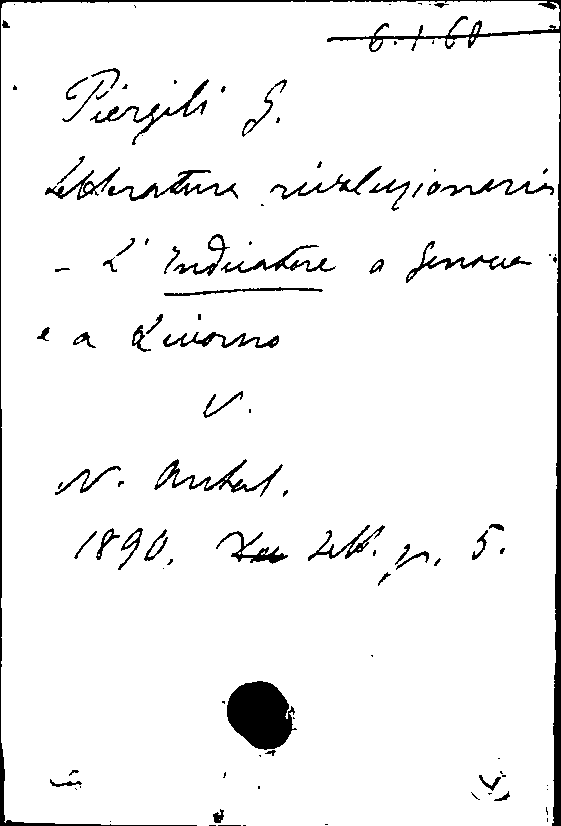 6.1.60
Piergili G.
Letteratura rivoluzionaria
- L' Indicatore a Genova
e a Livorno
V.
N. Antol.
1890, Sett. p. 5.